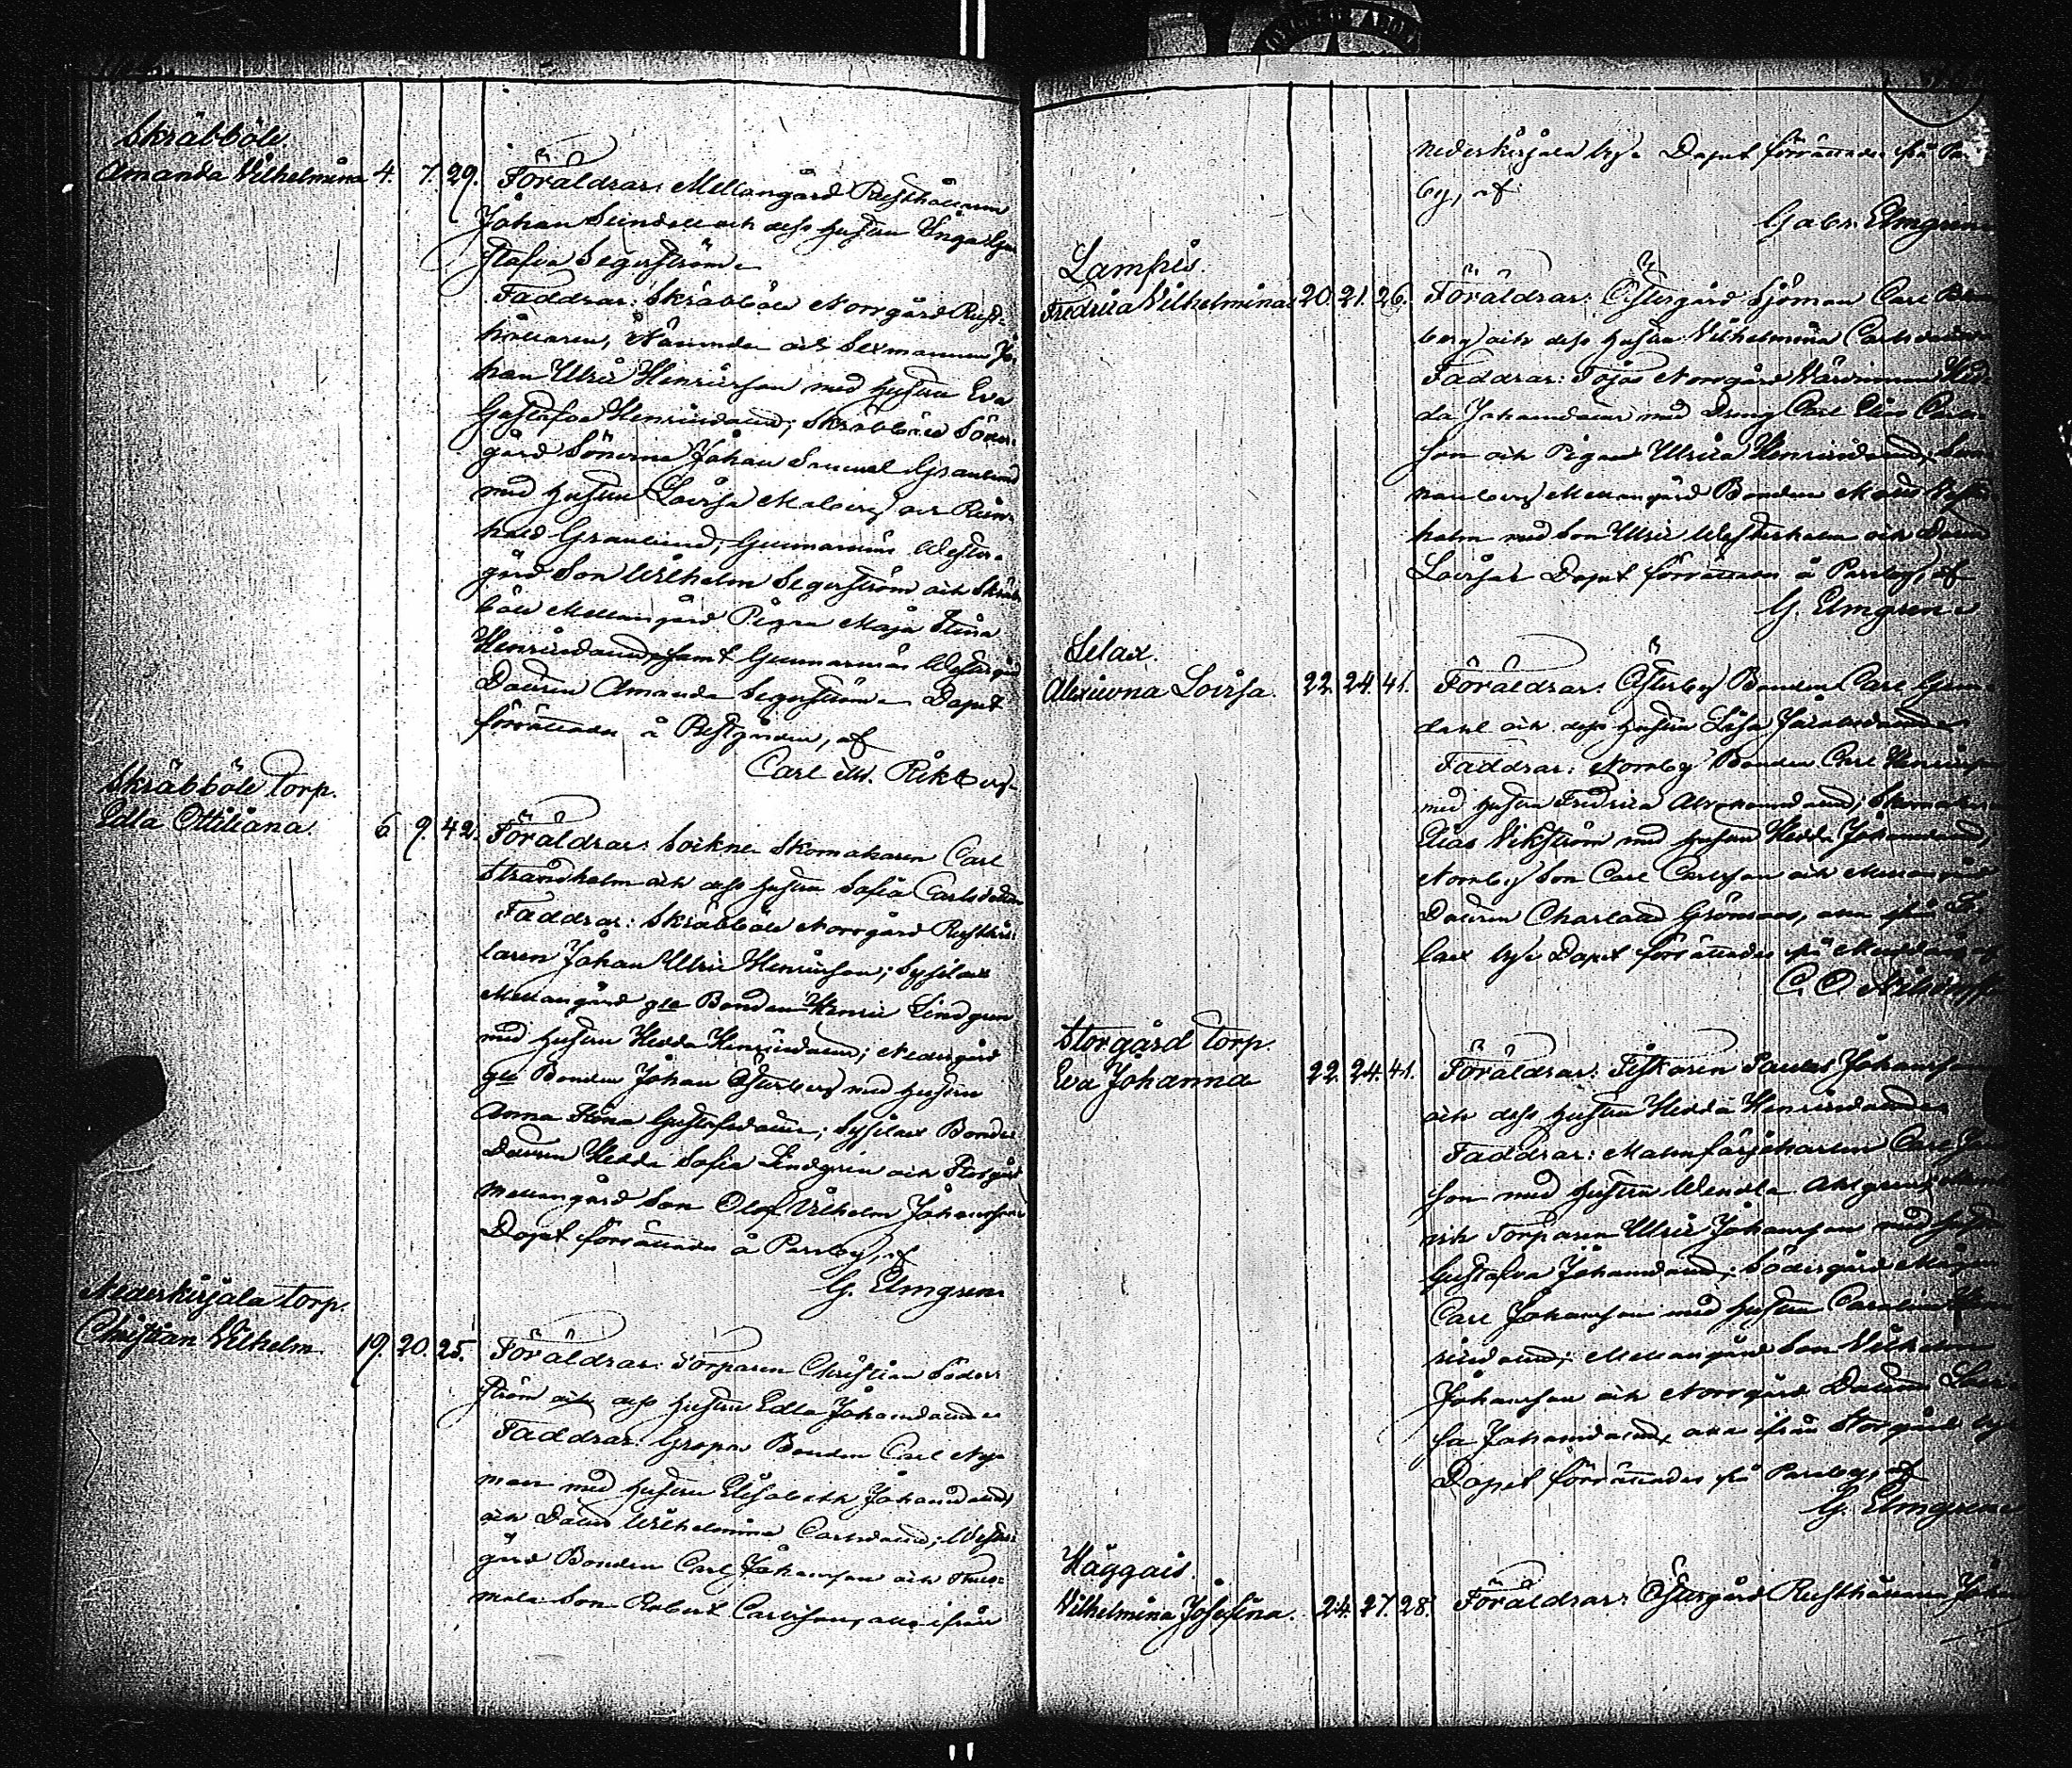 Skräbböle.
Amanda Vilhelmina 4. 7. 29. Föräldrar: Mellangård Rusthållaren
Johan Lindell och dess hustru Inga Gu
stafva Segerström.
Faddrar: Skräbböle Norrgård Rust-
hållaren, Nämnde och Sexmannen Jo
han Ulric Henricsson med hustru Eva
Gustafva Henricsdaur; Skräbböle Söder-
gård Sönerna Johan Samuel Granlund
med hustru Lovisa Malberg och Rein-
hold Granlund; Gunnarnäs Wester-
gård Son Wilhelm Segerström och Skräb
böle Mellangård Pigan Maja Stina
Henricsdaur, samt Gunnarnäs Westergård
Dauren Amanda Segerström. Dopet
förrättades å Prestgården, af
Carl M. Rikberg.
Skräbböle torp.
Edla Ottiliana. 6 9. 42. Föräldrar: Sockne Skomakaren Carl
Strandholm och dess hustru Sofia Carlsdotter
Faddrar: Skräbböle Norrgård Rusthål-
laren Johan Ulric Henricsson; Sysilax
Mellangård gle Bonden Henric Lindgren
med hustru Hedda Henricsdaur; Nedergård
gle Bonden Johan Österberg med hustru
Anna Stina Gustafsdaur; Sysilax Bonde
Dauren Hedda Sofia Lindgrén och Storgård
Mellangård Son Olof Vilhelm Johansson
Dopet förrättades å Parsby, af
G. Elmgren.
Nederkirjala torp.
Christian Vilhelm 19. 20. 25. Föräldrar: Torparen Christian Söder-
ström och dess hustru Edla Johansdaur.
Faddrar: Bonden Carl Ny-
man med hustru Elisabeth Johansdaur,
och Daur Wilhelmina Carlsdaur; Wester-
gård Bonden Carl Johansson och
Son Robert Carlsson, alla ifrån
Nederkirjala by. Dopet förrättades på Pars
by, af
Gabr. Elmgren.
Lampis.
Fredrica Vilhelmina 20. 21. 26. Föräldrar: Östergård Sjöman Carl
berg och dess hustru Wilhelmina Carlsdaur
Faddrar: Norrgård Värdinnan Hed-
da Johansdaur med Dreng Carl Carls-
son och Pigan Ulrica Henricsdaur,
Mellangård Bonden Mats Wester
holm med Son Ulric Westerholm och Daur
Lovisa. Dopet förrättades å Parsby, af
G. Elmgren.
Lelax.
Lovisa. 22. 24. 41. Föräldrar: Österby Bonden Carl Grön-
dahl och dess hustru Lisa Jacobsdaur.
Faddrar: Norrby Bonden Carl Henricsson
med hustru Fredrica Abrahamsdaur; Skomakaren
Elias Vikström med hustru Hedda Johansdaur;
Norrby Son Carl Carlsson och Mellangård
Dauren Charlotta Grönroos, alla från Le-
lax by. Dopet förrättades på
Storgård torp.
Eva Johanna 22. 24. 41. Föräldrar: Fiskaren Paulus Johansson
och dess hustru Hedda Henricsdaur.
Faddrar: Malmfärjekarlen Carl
son med hustru Wendla Ahlgren;
Torparen Ulric Johansson med hustru
Gustafva Johansdaur; Södergård Mågen
Carl Johansson med hustru Carolina Hen-
ricsdaur; Mellangård Son Vilhelm
Johansson och Norrgård Dauren Lovi-
sa Johansdaur, alla ifrån Storgård by
Dopet förrättades på Parsby, af
G. Elmgren.
Häggais.
Vilhelmina Josefina. 24. 27. 28. Föräldrar: Östergård Rusthållaren